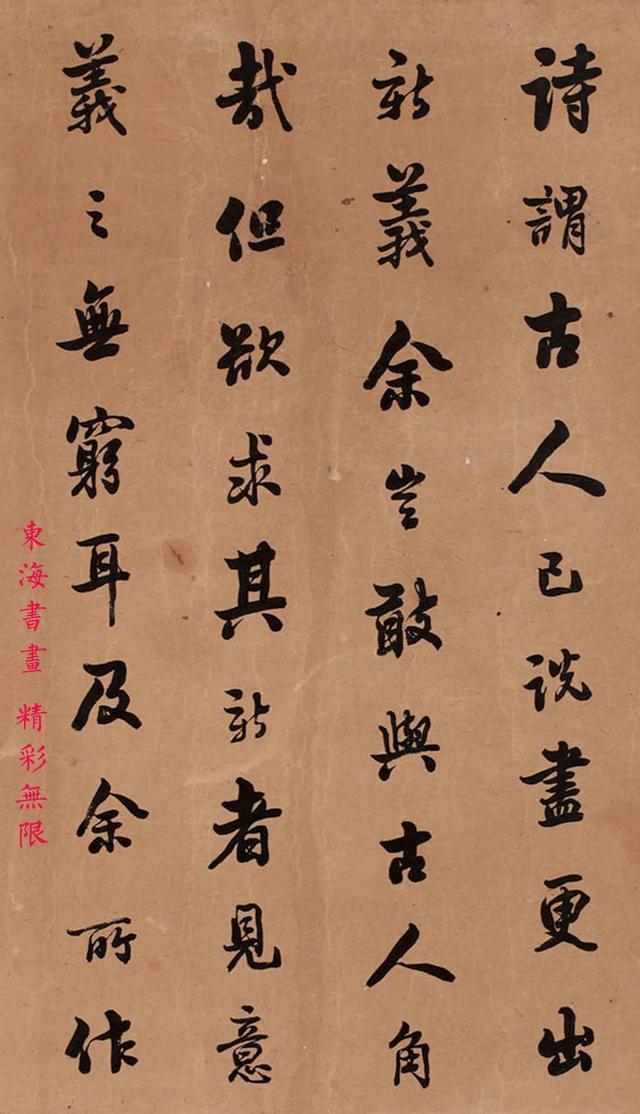 詩謂古人已説盡更出
新義余豈敢與古人角
哉但欲求其新者見意
義之無窮耳及余所作
東海書畫 精彩無限